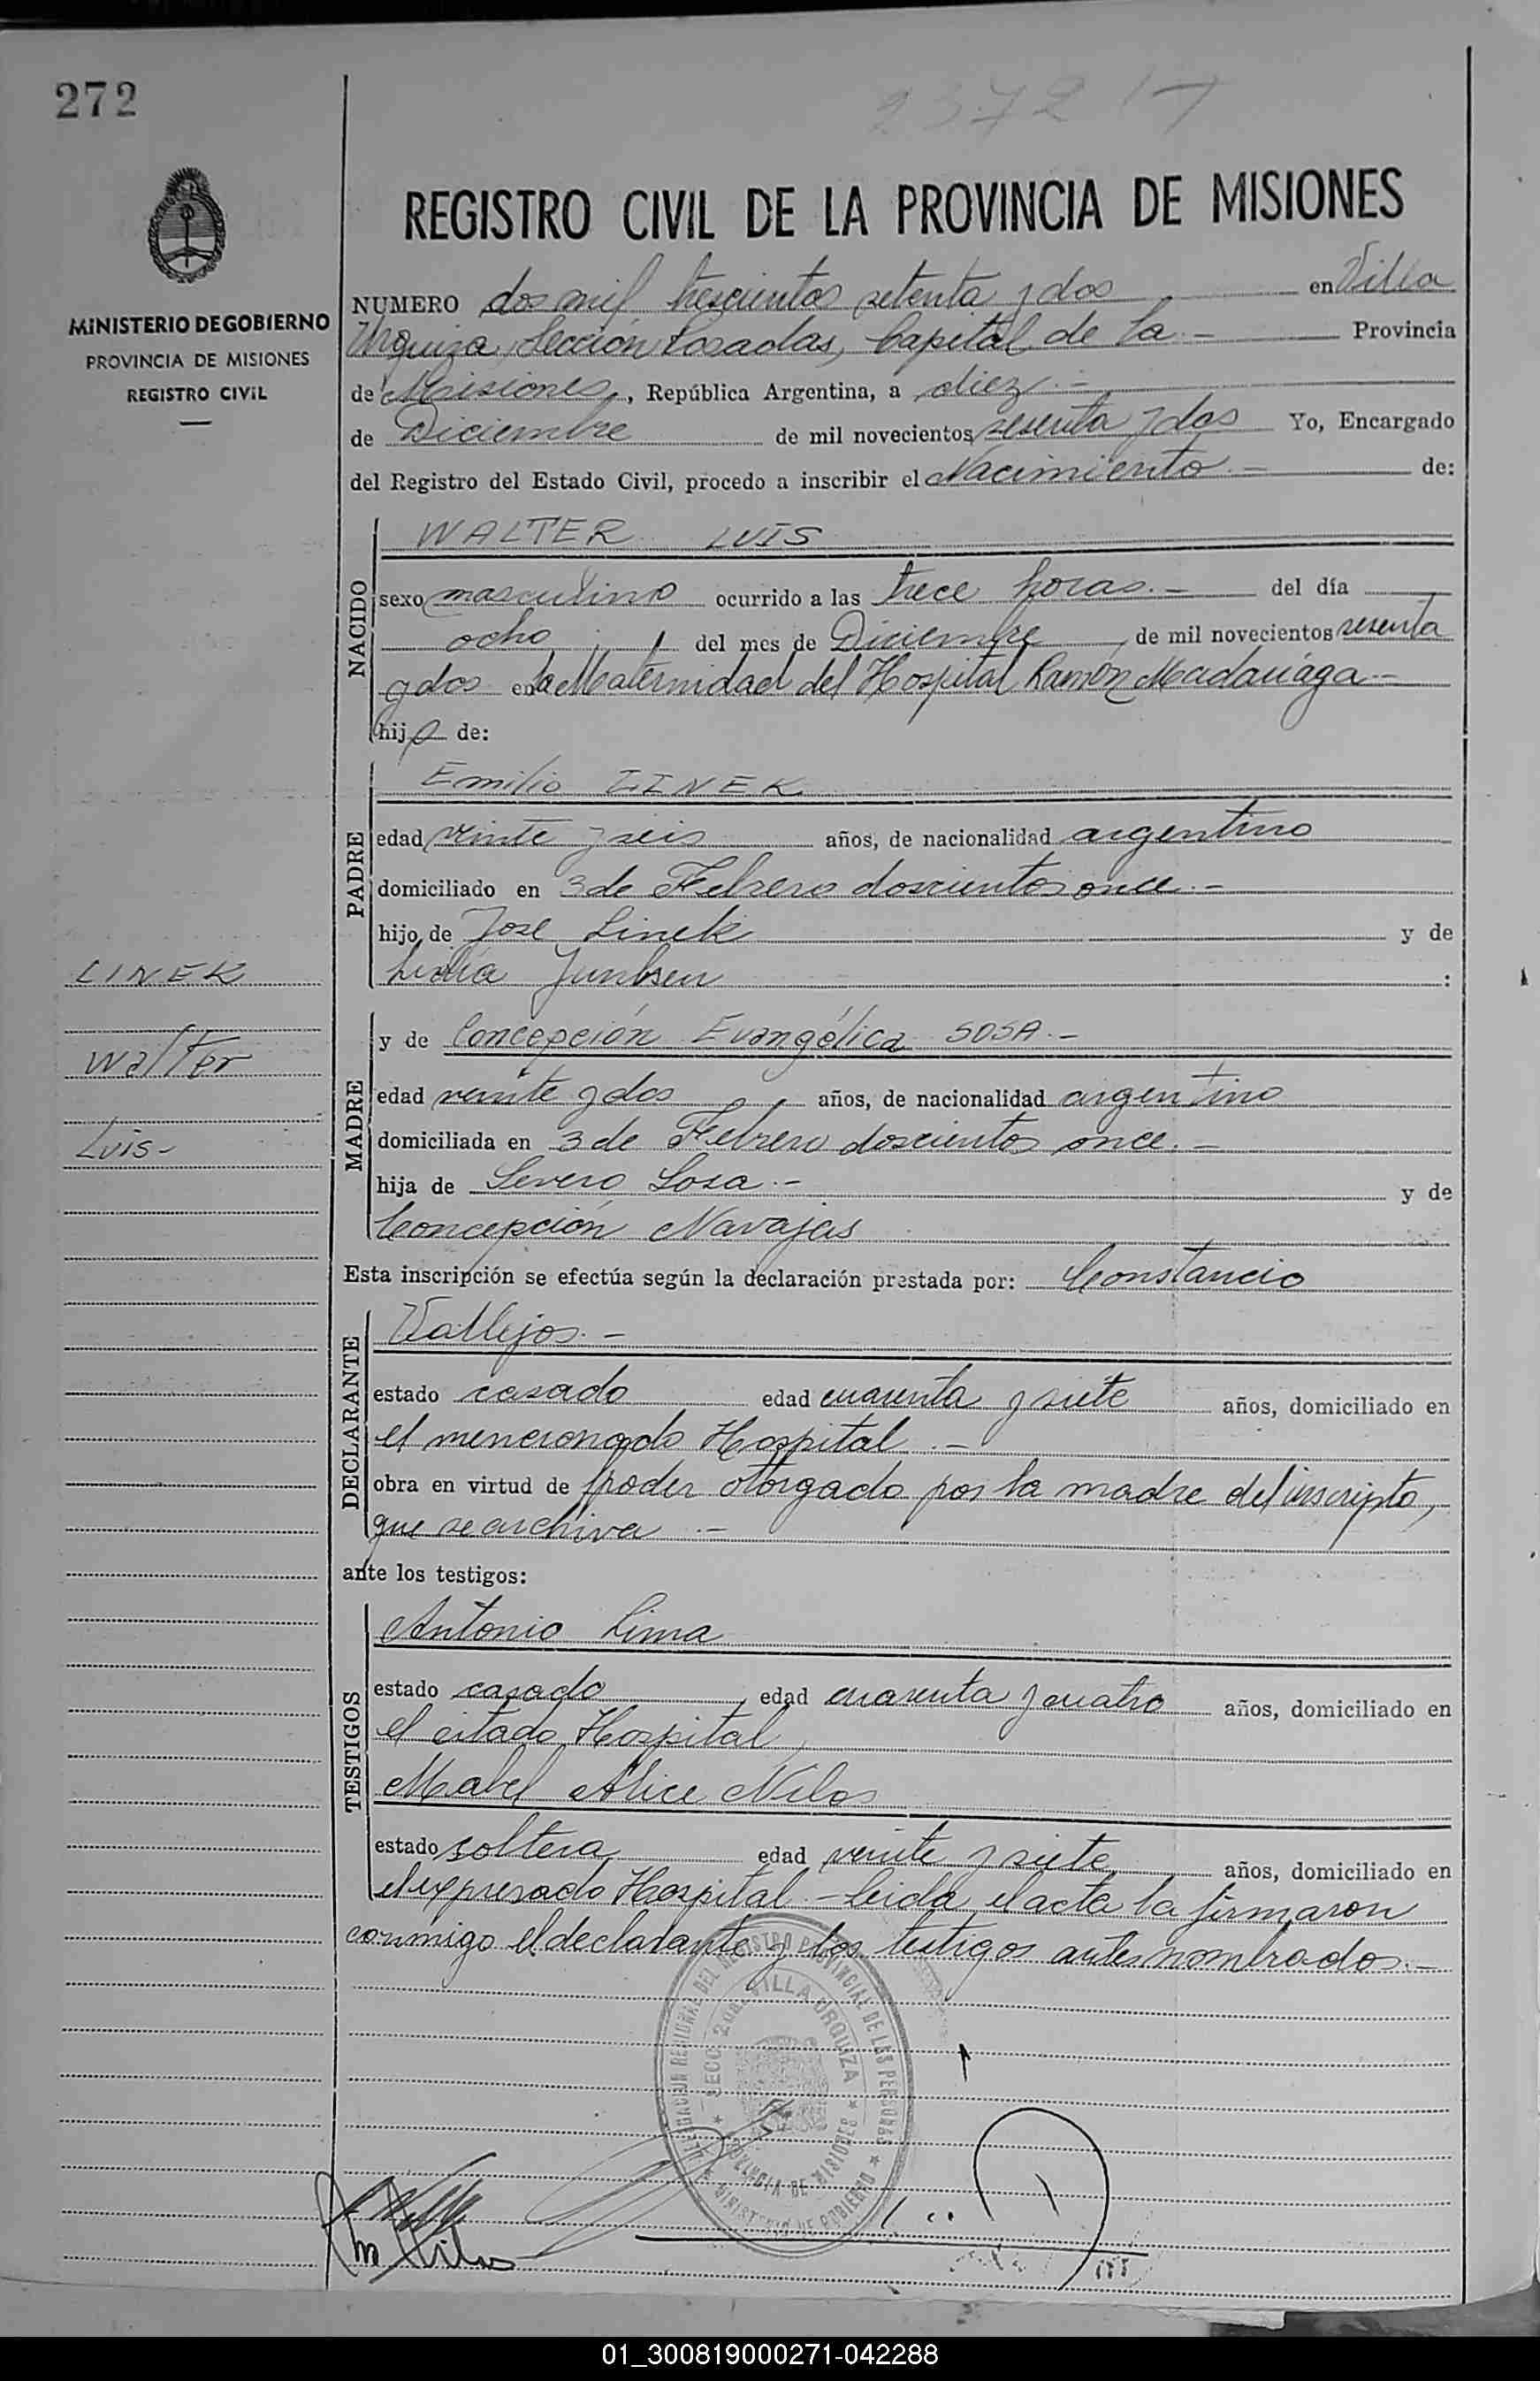 272
2372 T
MINISTERIO DE GOBIERNO
PROVINCIA DE MISIONES
REGISTRO CIVIL
REGISTRO CIVIL DE LA PROVINCIA DE MISIONES
NUMERO dos mil trescientos setenta y dos en Villa
Urquiza Sección Posadas, Capital de la.- Provincia
de Misiones, República Argentina, a diez.-
de Diciembre de mil novecientos sesenta y dos Yo, Encargado
del Registro del Estado Civil, procedo a inscribir el Nacimiento.- de:
NACIDO
WALTER LUIS
sexo masculino ocurrido a las trece horas.- del día
ocho del mes de Diciembre de mil novecientos sesenta
y dos en la Maternidad del Hospital Ramón Madariaga.-
hijo de:
PADRE
Emilio LINEK
edad veinte y seis años, de nacionalidad argentino
domiciliado en 3 de Febrero doscientos once.-
hijo de José Linek y de
Lidia :
LINEK
Walter
Luis-
MADRE
y de Concepción Evangélica SOSA.-
edad veinte y dos años, de nacionalidad argentino
domiciliada en 3 de Febrero doscientos once.-
hija de Severo Sosa.- y de
Concepción Navajas
Esta inscripción se efectúa según la declaración prestada por: Constancio
DECLARANTE
Vallejos.-
estado casado edad cuarenta y siete años, domiciliado en
el mencionado Hospital.-
obra en virtud de poder otorgado por la madre del inscripto,
que se archiva.-
ante los testigos:
TESTIGOS
Antonio Lima
estado casado edad cuarenta y cuatro años, domiciliado en
el citado Hospital,
Mabel Alice Nilos
estado soltera edad veinte y siete años, domiciliado en
el expresado Hospital.- Leida el acta la firmaron
conmigo el declarante y los testigos antes nombrados.-
SECC. 2da. VILLA URQUIZA
PROVINCIA DE MISIONES
MINISTERIO DE GOBIERNO
01_300819000271-042288